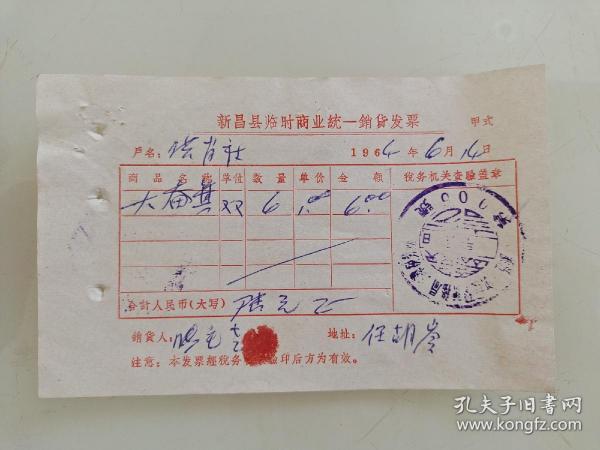 新昌县临时商业統一銷貨发票 甲式
戶名: 供肖社 1964年6月14日
商品名称 单位 数量 单价 金額 税务机关查驗盖章
大畚箕 双 6 1.00 6.00
合計人民币(大写) 陆元正
銷貨人: 地址: 任胡岺
注意: 本发票經税务 驗印后方为有效。
孔夫子旧书网
www.kongfz.com